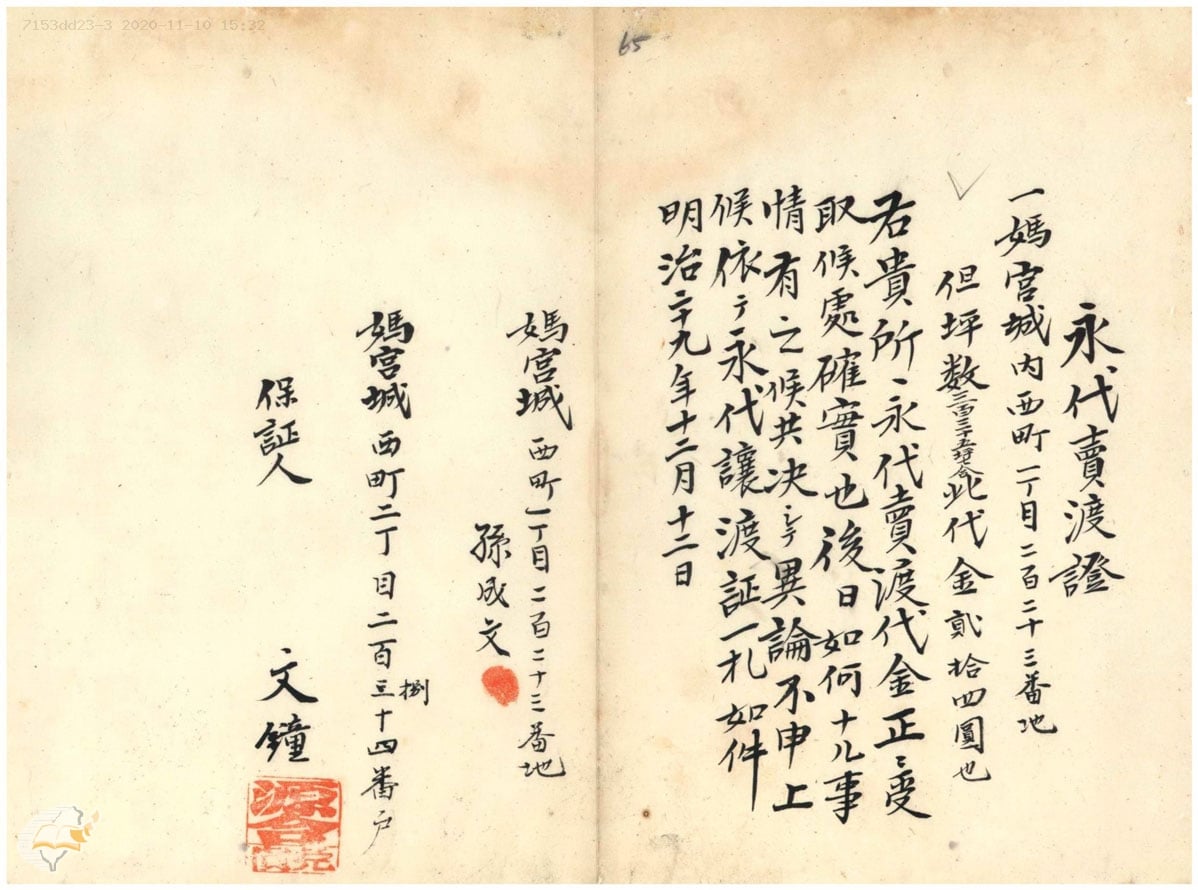 7153dd23-3 2020-11-10 15:32
65
永代賣渡證
一媽宮城内西町一丁目二百二十三番地
但坪数二百三十五坪 此代金貳拾四圓也
右貴所ヘ永代賣渡代金正ニ受
取候處確實也後日如何ナル事
情有之候共決シテ異論不申上
候依テ永代讓渡証一札如件
明治二十九年十二月十二日
媽宮城西町一丁目二百二十三番地
孫成文
媽宮城西町二丁目二百三十四番戸
捌
保証人 文鐘